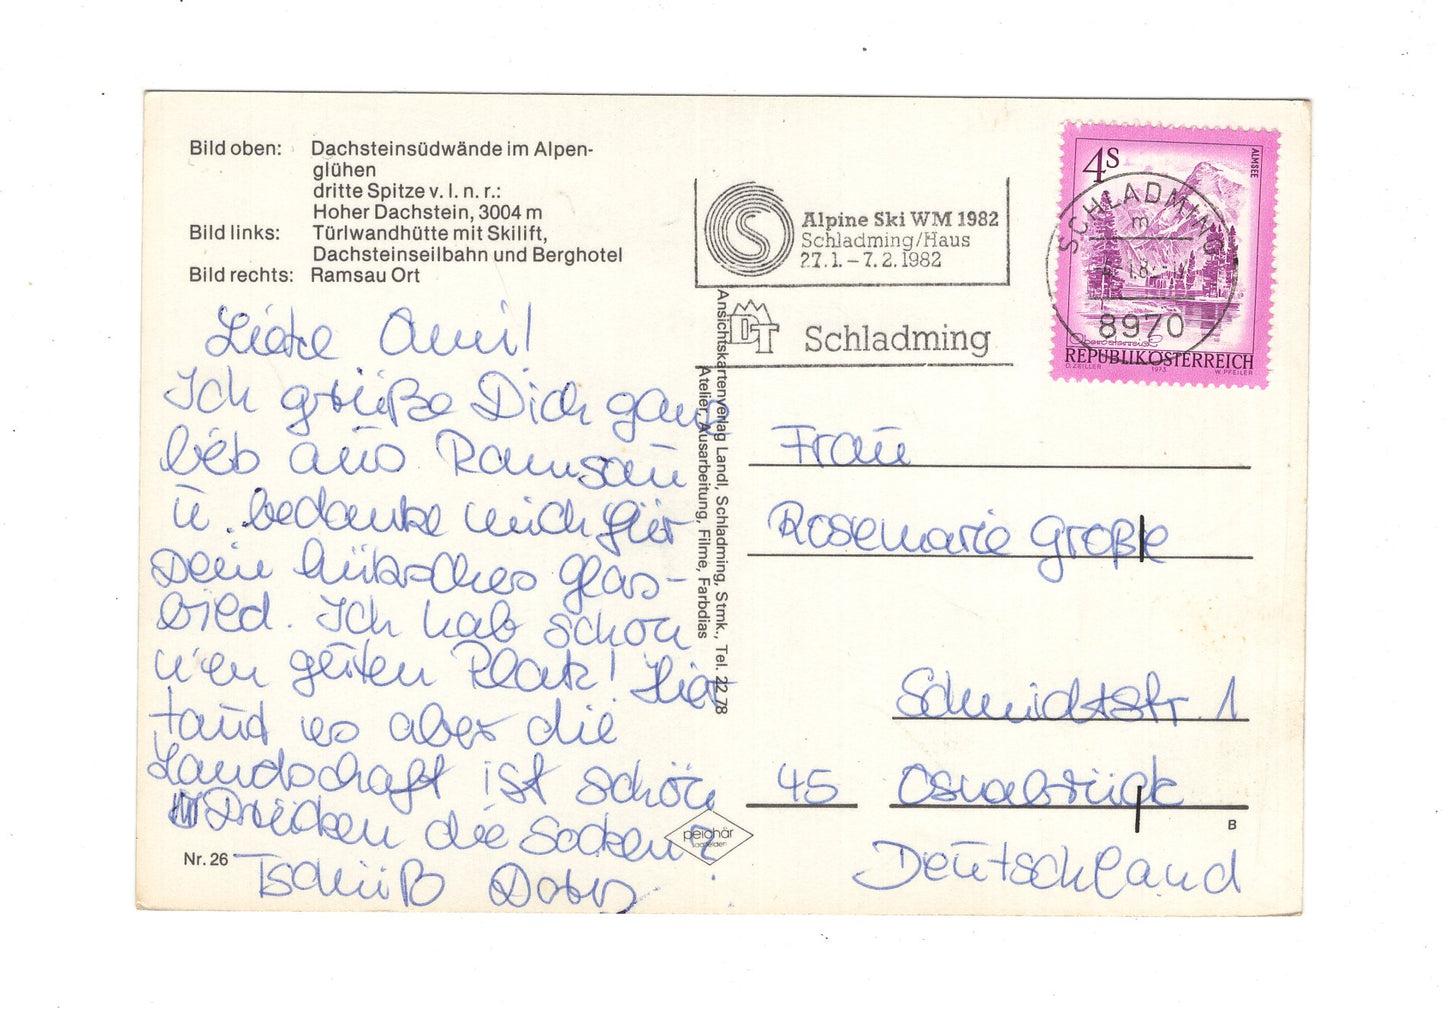 Bild oben: Dachsteinsüdwände im Alpen-
glühen
dritte Spitze v. l. n. r.:
Hoher Dachstein, 3004 m
Bild links: Türlwandhütte mit Skilift,
Dachsteinseilbahn und Berghotel
Bild rechts: Ramsau Ort
Liebe Omi!
Ich grüße Dich ganz
lieb aus Ramsau
u. bedanke mich für
Dein hübsches Glas-
bild. Ich hab schon
n'en guten Platz! Hier
taut es aber die
Landschaft ist schön
Drücken die Socken?
Tschüß
Nr. 26
Ansichtskartenverlag Landl, Schladming, Stmk., Tel. 22 78
Atelier, Ausarbeitung, Filme, Farbdias
peichär
saalfelden
Alpine Ski WM 1982
Schladming/Haus
27. 1. – 7. 2. 1982
DT Schladming
4S
ALMSEE
SCHLADMING
m
8970
Oberösterreich
REPUBLIK ÖSTERREICH
O. ZEILLER 1973 W. PFEILER
Frau
Rosemarie Große
Schmidtstr. 1
45 Osnabrück
B
Deutschland